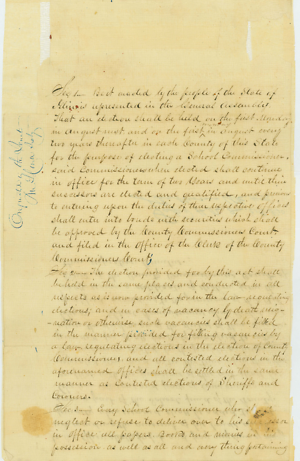 Be it enacted by the people of the State of
Illinois represented in the General Assembly
That an election shall be held on the first Monday
in August next and on the first in August every
two years thereafter in each County of this State
for the purpose of electing a School Commissioner,
said Commissioners when elected shall continue
in office for the term of two years and until their
successors are elected and qualified, and previous
to entering upon the duties of their respective offices
shall enter into bonds with securities which shall
be approved by the County Commissioners Court
and filed in the Office of the Clerk of the County
Commissioners Court
The election provided for by this act shall
be held in the same places and conducted in all
respects as is now provided for in the law regulating
elections, and in cases of vacancy by death resig-
nation or otherwise such vacancies shall be filled
in the manner provided for filling vacancies by
a law regulating elections in the election of County
Commissioner, and all contested elections in the
aforenamed offices shall be settled in the same
manner as contested elections of Sheriffs and
Coroners.
Any School Commissioner who shall
neglect or refuse to deliver over to his
in office all papers Books and in his
possession as well as all and every thing pertaining